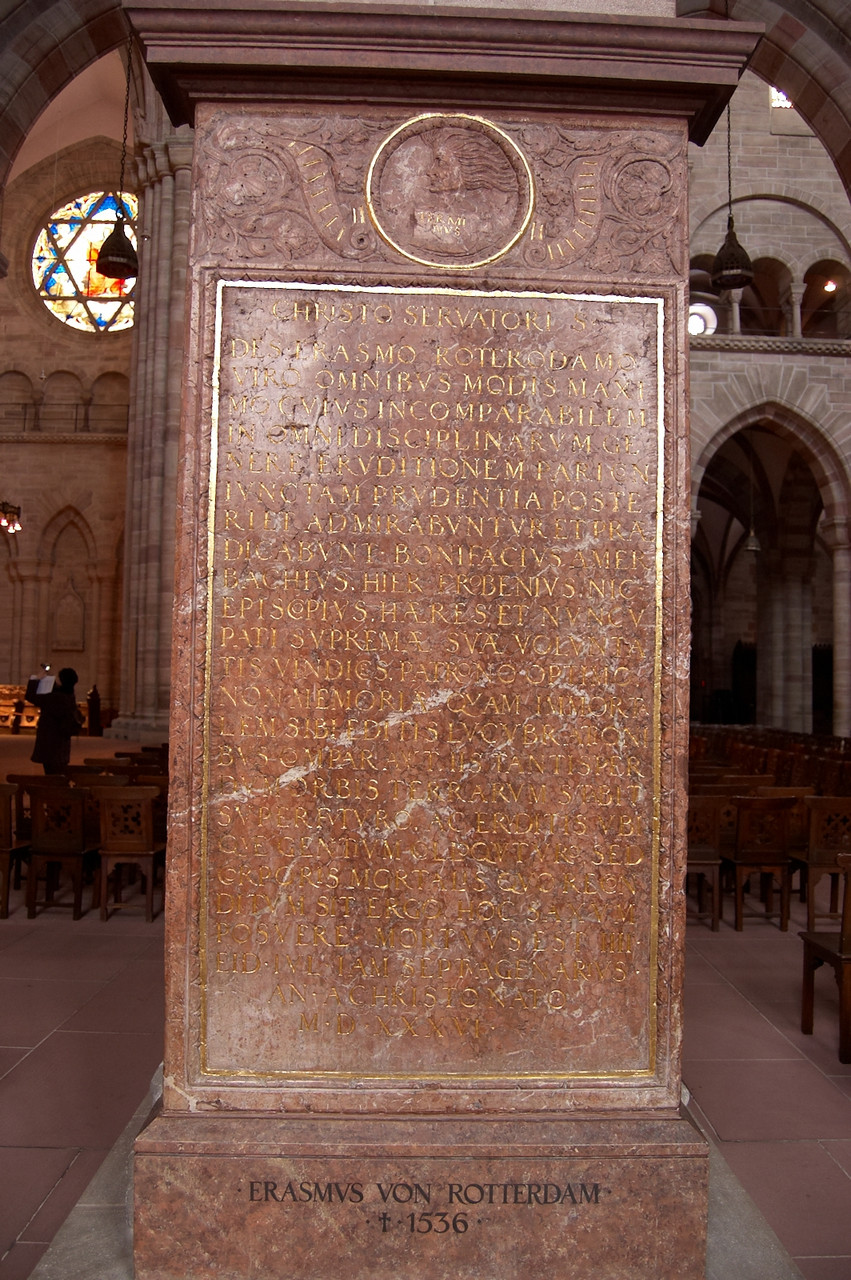 TERMI
NVS
CHRISTO SERVATORI S.
DES. ERASMO ROTERODAMO
VIRO OMNIBVS MODIS MAXI
MO CVIVS INCOMPARABILEM
IN OMNI DISCIPLINARVM GE
NERE ERVDITIONEM PARI CON
IVNCTAM PRVDENTIA POSTE
RI ET ADMIRABVNTVR ET PRÆ
DICABVNT BONIFACIVS AMER
BACHIVS. HIER. FROBENIVS. NIC.
EPISCOPIVS. HÆRES. ET NVNCV
PATI SVPREMÆ SVÆ VOLVNTA
TIS VINDICES. PATRONO OPTIMO
NON MEMORIÆ QVAM IMMORTA
LEM SIBI EDITIS LVCVBRATIONI
BVS COMPARAVIT IIS TANTISPER
ORBIS TERRARVM STABIT
SVPERFVTVRO. AC ERVDITIS VBI
QVE GENTIVM COLLOQVTVRO SED
CORPORIS MORTALIS QVO RECON
DITVM SIT ERGO HOC SAXVM
POSVERE MORTVVS EST IIII.
EID. IVL. IAM SEPTVAGENARIVS.
AN. A CHRISTO NATO
M. D. XXXVI.
·ERASMVS VON ROTTERDAM·
·✝·1536·